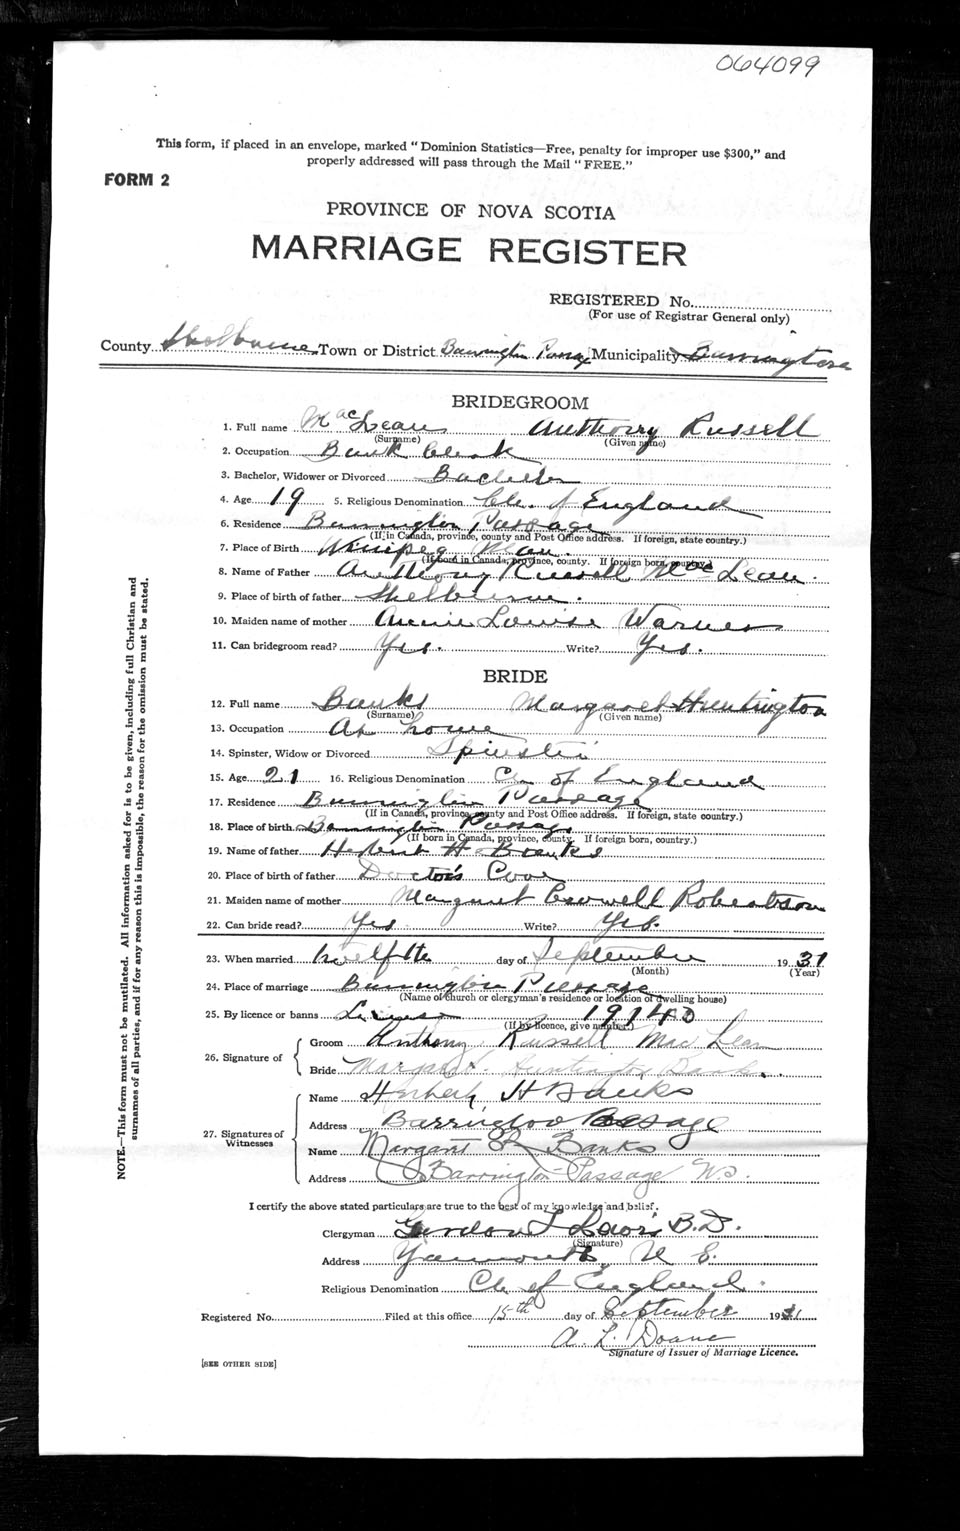 064099
This form, if placed in an envelope, marked "Dominion Statistics—Free, penalty for improper use $300," and
properly addressed will pass through the Mail "FREE."
FORM 2
PROVINCE OF NOVA SCOTIA
MARRIAGE REGISTER
REGISTERED No.
(For use of Registrar General only)
County Shelburne Town or District Barrington Passage Municipality Barrington
BRIDEGROOM
1. Full name MacLean Anthony Russell
(Surname) (Given name)
2. Occupation Bank Clerk
3. Bachelor, Widower or Divorced Bachelor
4. Age 19 5. Religious Denomination Ch. of England
6. Residence Barrington Passage
(If in Canada, province, county and Post Office address. If foreign, state country.)
7. Place of Birth Winnipeg Man.
(If born in Canada, province, county. If foreign born, country.)
8. Name of Father Anthony Russell MacLean.
9. Place of birth of father Shelburne.
10. Maiden name of mother Annie Louise Warner
11. Can bridegroom read? Yes. Write? Yes.
BRIDE
12. Full name Banks Margaret Huntington
(Surname) (Given name)
13. Occupation At home
14. Spinster, Widow or Divorced Spinster
15. Age 21 16. Religious Denomination Ch of England
17. Residence Barrington Passage
(If in Canada, province, county and Post Office address. If foreign, state country.)
18. Place of birth Barrington Passage
(If born in Canada, province, county. If foreign born, country.)
19. Name of father Herbert H Banks
20. Place of birth of father Doctor's Cove
21. Maiden name of mother Margaret Crowell Robertson
22. Can bride read? Yes Write? Yes.
23. When married twelfth day of September 1931
(Month) (Year)
24. Place of marriage Barrington Passage
(Name of church or clergyman's residence or location of dwelling house)
25. By licence or banns License 19140
(If by licence, give number.)
26. Signature of Groom Anthony Russell MacLean
Bride Margaret Huntington Banks.
27. Signatures of Witnesses Name Herbert H Banks
Address Barrington Passage
Name Margaret R Banks
Address Barrington Passage N.S.
I certify the above stated particulars are true to the best of my knowledge and belief.
Clergyman Gordon T Lewis B.D.
(Signature)
Address Yarmouth, N S.
Religious Denomination Ch of England.
Registered No. Filed at this office 15th day of September 1931
A. L. Doane
Signature of Issuer of Marriage Licence.
[SEE OTHER SIDE]
NOTE.—This form must not be mutilated. All information asked for is to be given, including full Christian and
surnames of all parties, and if for any reason this is impossible, the reason for the omission must be stated.